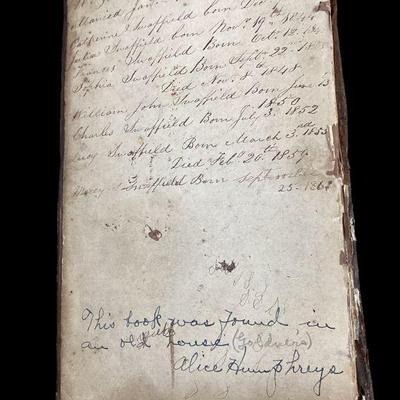 Married Jan
Catherine Swaffield born Dec
Julia Swaffield born Nov 19th 1844
Frances Swaffield Born Oct. 12.
Sophia Swaffield Born Sept 22nd
Died Nov. 8th 1848
William John Swaffield Born June 13
1850
Charles Swaffield Born July 3. 1852
Lucy Swaffield Born March 3rd 1855
Died Feb. 20th
Swaffield Born September
25-
This book was found in
an old house (Goldners)
Alice Humphreys